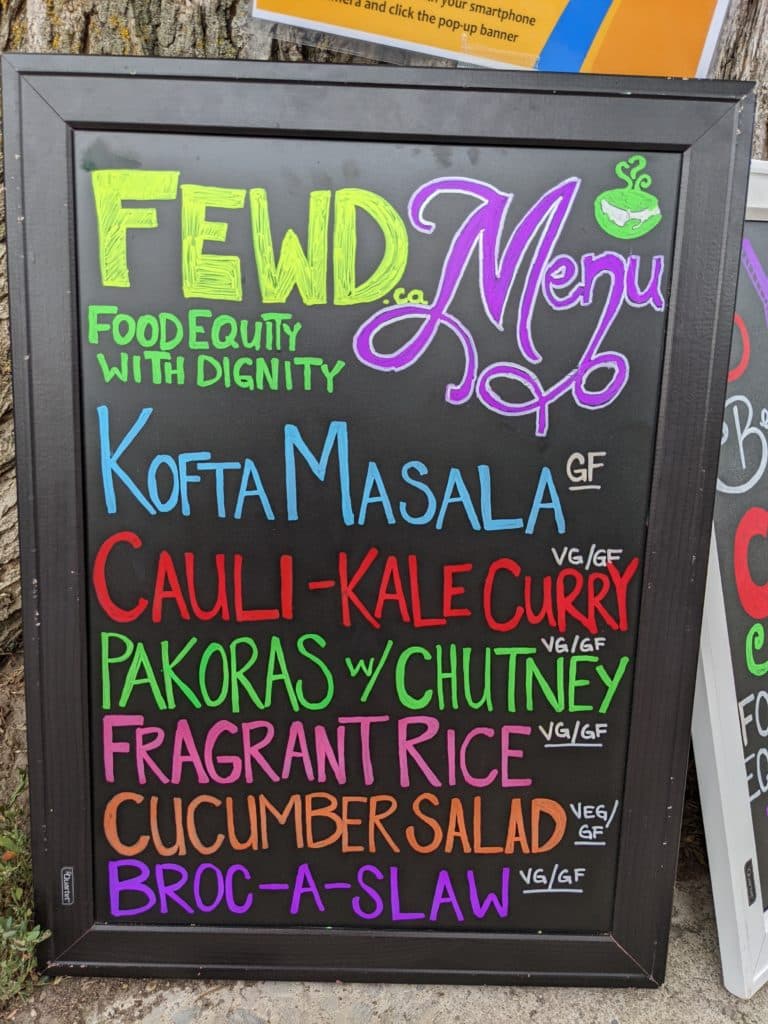 in your smartphone
and click the pop-up banner
FEWD.ca Menu
FOOD EQUITY
WITH DIGNITY
KOFTA MASALA GF
CAULI-KALE CURRY VG/GF
PAKORAS w/ CHUTNEY VG/GF
FRAGRANT RICE VG/GF
CUCUMBER SALAD VEG/
GF
BROC-A-SLAW VG/GF
QUARTET